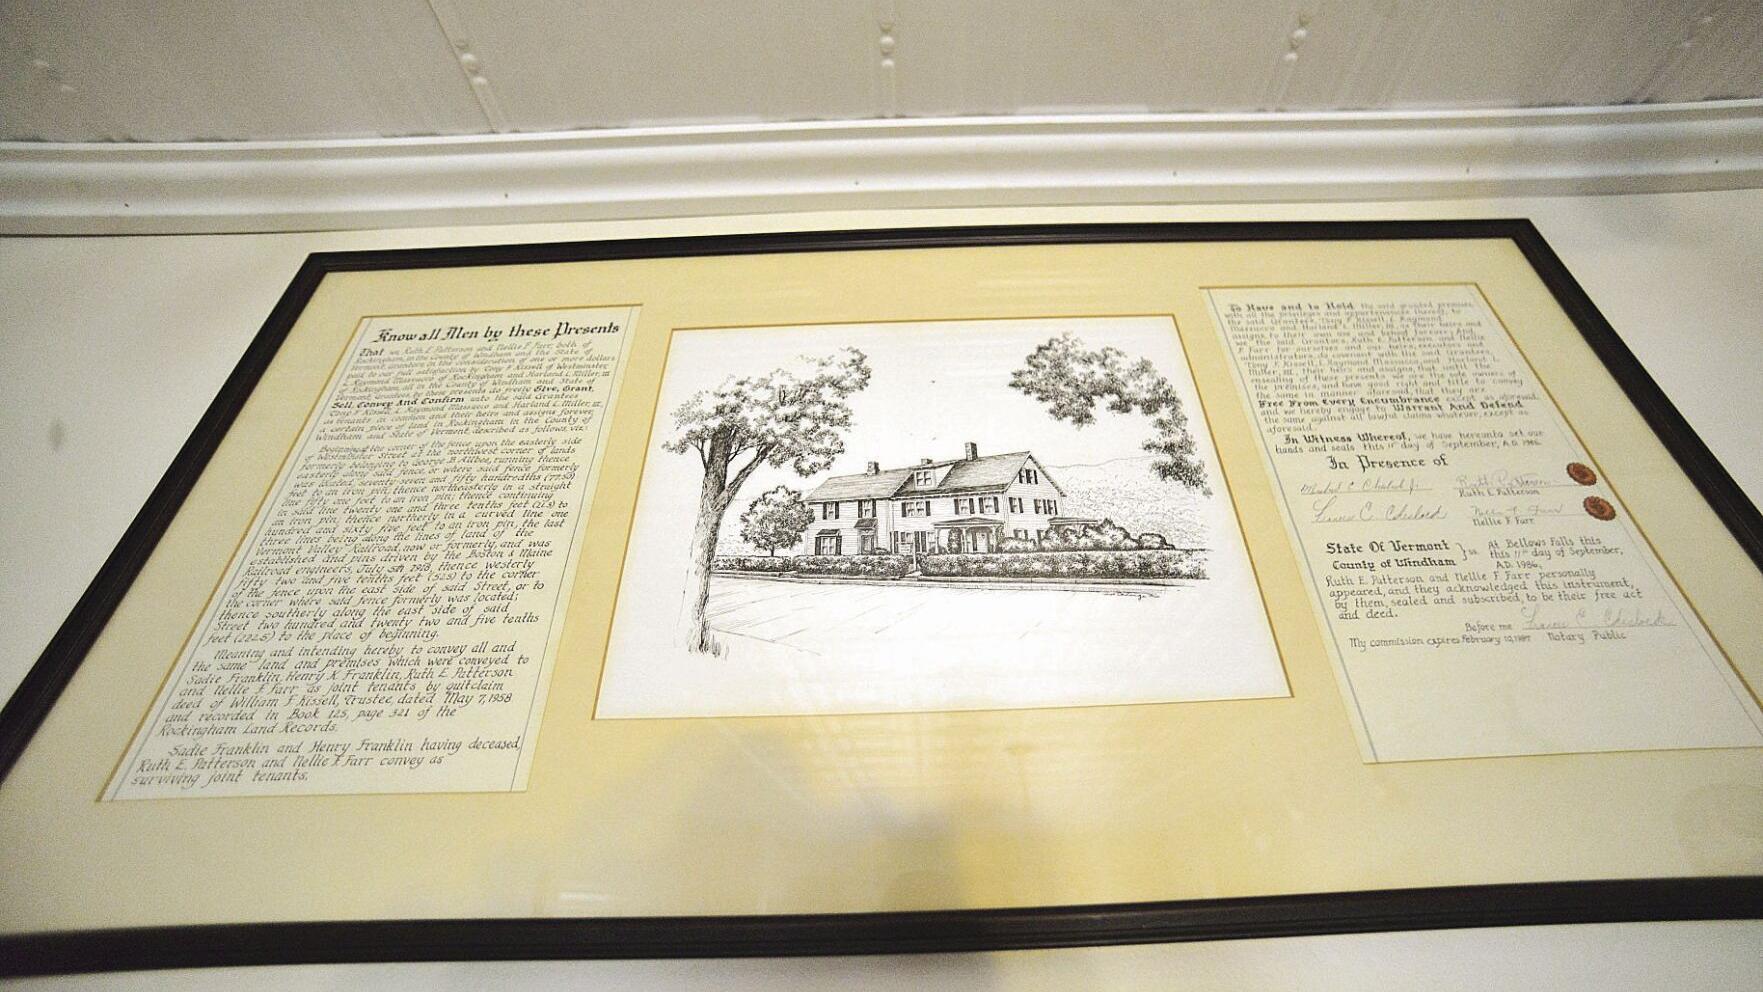 Know all Men by these Presents
That we, Ruth E. Patterson and Nellie F. Farr, both of
Rockingham, in the County of Windham and the State of
Vermont, Grantors, in the consideration of one or more dollars
paid to our full satisfaction by Tony F. Kissell of Westminster,
L. Raymond Massucco of Rockingham and Harland L. Miller, III
of Rockingham, all in the County of Windham and State of
Vermont, Grantees, by these presents do freely Give, Grant,
Sell, Convey And Confirm unto the said Grantees
Tony F. Kissell, L. Raymond Massucco and Harland L. Miller, III,
as tenants in common and their heirs and assigns forever,
a certain piece of land in Rockingham in the County of
Windham and State of Vermont, described as follows, viz:
Beginning at the corner of the fence upon the easterly side
of Westminster Street at the northwest corner of lands
formerly belonging to George B. running thence
easterly along said fence, or where said fence formerly
was located, seventy-seven and fifty hundredths (77.50)
feet to an iron pin; thence northeasterly in a straight
line fifty one feet to an iron pin; thence continuing
in said line twenty one and three tenths feet (21.3) to
an iron pin, thence northerly in a curved line one
hundred and sixty five feet to an iron pin, the last
three lines being along the lines of land of the
Vermont Valley Railroad, now or formerly, and was
established and pins driven by the Boston & Maine
Railroad engineers, July 5th thence westerly
fifty two and five tenths feet (52.5) to the corner
of the fence upon the east side of said Street, or to
the corner where said fence formerly was located;
thence southerly along the east side of said
Street two hundred and twenty two and five tenths
feet (222.5) to the place of beginning.
Meaning and intending hereby to convey all and
the same land and premises which were conveyed to
Sadie Franklin, Henry K. Franklin, Ruth E. Patterson
and Nellie F. Farr as joint tenants by quitclaim
deed of William F. Kissell, Trustee, dated May 7, 1958
and recorded in Book 125, page 321 of the
Rockingham Land Records.
Sadie Franklin and Henry Franklin having deceased,
Ruth E. Patterson and Nellie F. Farr convey as
surviving joint tenants.
To Have and to Hold the said granted premises,
with all the privileges and appurtenances thereof, to
the said Grantees, Tony F. Kissell, L. Raymond
Massucco and Harland L. Miller, III, as their heirs and
assigns, to their own use and behoof forever; And
we, the said Grantors, Ruth E. Patterson, and Nellie
F. Farr for ourselves and our heirs, executors and
administrators, do covenant with the said Grantees,
Tony F. Kissell, L. Raymond Massucco, and Harland L.
Miller, III, their heirs and assigns, that until the
ensealing of these presents we are the sole owners of
the premises, and have good right and title to convey
the same in manner aforesaid, that they are
Free From Every Encumbrance except as aforesaid,
and we hereby engage to Warrant And Defend
the same against all lawful claims whatever, except as
aforesaid.
In Witness Whereof, we have hereunto set our
hands and seals this 11th day of September, A.D. 1986.
In Presence of
Ruth E. Patterson
Nellie F. Farr
State Of Vermont
County of Windham } ss.
At Bellows Falls this
this 11th day of September,
A.D. 1986,
Ruth E. Patterson and Nellie F. Farr personally
appeared, and they acknowledged this instrument,
by them, sealed and subscribed, to be their free act
and deed.
Before me
My commission expires February 10, 1987 Notary Public